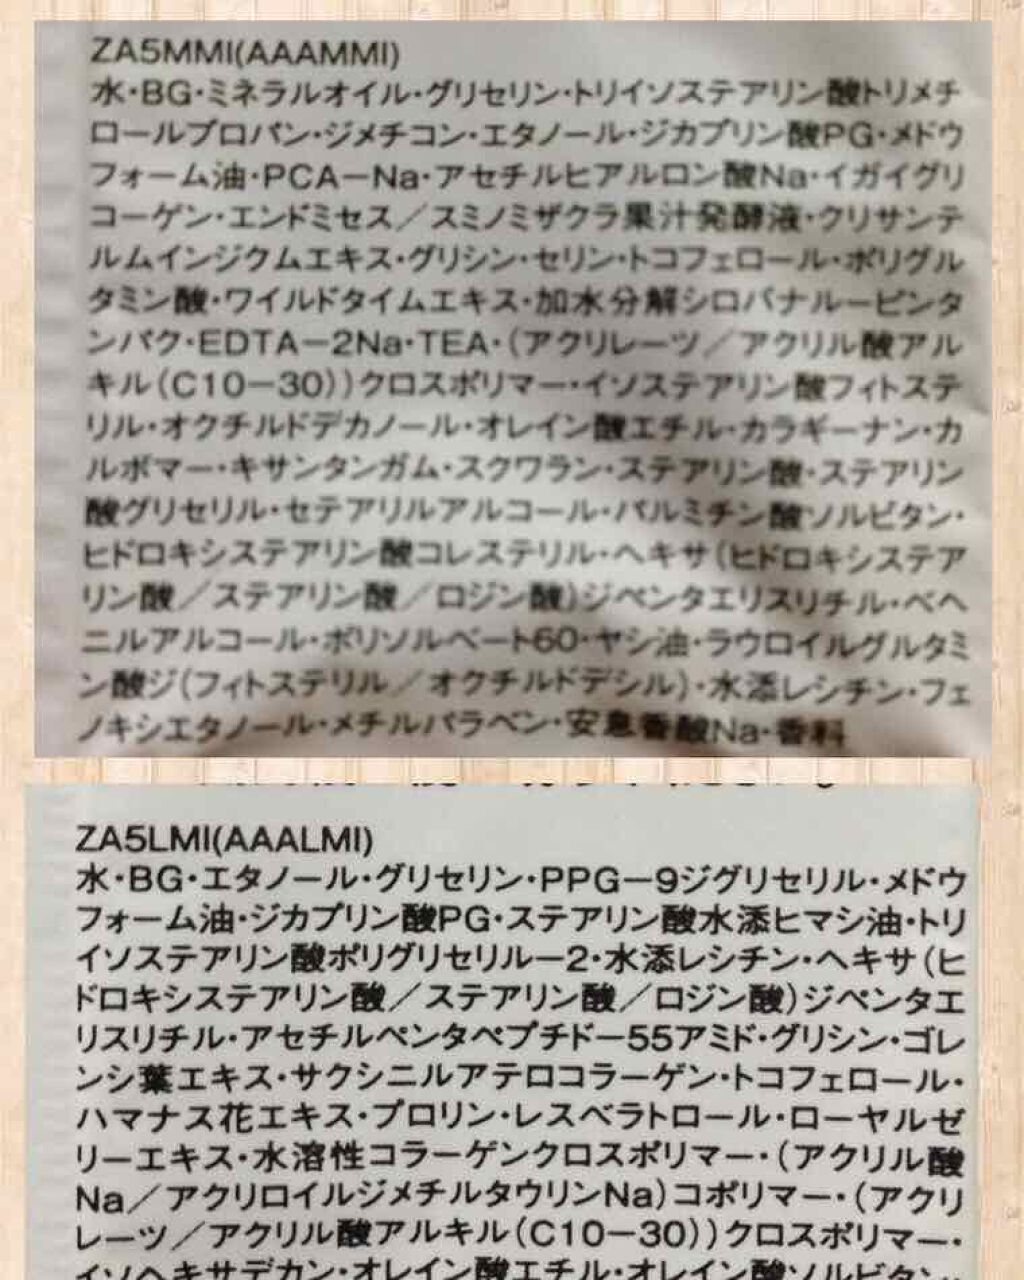 ZA5MMI(AAAMMI)
水・BG・ミネラルオイル・グリセリン・トリイソステアリン酸トリメチ
ロールプロパン・ジメチコン・エタノール・ジカプリン酸PG・メドウ
フォーム油・PCA－Na・アセチルヒアルロン酸Na・イガイグリ
コーゲン・エンドミセス／スミノミザクラ果汁発酵液・クリサンテ
ルムインジクムエキス・グリシン・セリン・トコフェロール・ポリグル
タミン酸・ワイルドタイムエキス・加水分解シロバナルーピンタ
ンパク・EDTA－2Na・TEA・(アクリレーツ／アクリル酸アル
キル(C10－30))クロスポリマー・イソステアリン酸フィトステ
リル・オクチルドデカノール・オレイン酸エチル・カラギーナン・カ
ルボマー・キサンタンガム・スクワラン・ステアリン酸・ステアリン
酸グリセリル・セテアリルアルコール・パルミチン酸ソルビタン・
ヒドロキシステアリン酸コレステリル・ヘキサ(ヒドロキシステア
リン酸／ステアリン酸／ロジン酸)ジペンタエリスリチル・ベヘ
ニルアルコール・ポリソルベート60・ヤシ油・ラウロイルグルタミ
ン酸ジ(フィトステリル／オクチルドデシル)・水添レシチン・フェ
ノキシエタノール・メチルパラベン・安息香酸Na・香料
ZA5LMI(AAALMI)
水・BG・エタノール・グリセリン・PPG－9ジグリセリル・メドウ
フォーム油・ジカプリン酸PG・ステアリン酸水添ヒマシ油・トリ
イソステアリン酸ポリグリセリル－2・水添レシチン・ヘキサ(ヒ
ドロキシステアリン酸／ステアリン酸／ロジン酸)ジペンタエ
リスリチル・アセチルペンタペプチド－55アミド・グリシン・ゴレ
ンシ葉エキス・サクシニルアテロコラーゲン・トコフェロール・
ハマナス花エキス・プロリン・レスベラトロール・ローヤルゼ
リーエキス・水溶性コラーゲンクロスポリマー・(アクリル酸
Na／アクリロイルジメチルタウリンNa)コポリマー・(アクリ
レーツ／アクリル酸アルキル(C10－30))クロスポリマー・
イソヘキサデカン・オレイン酸エチル・オレイン酸ソルビタン・